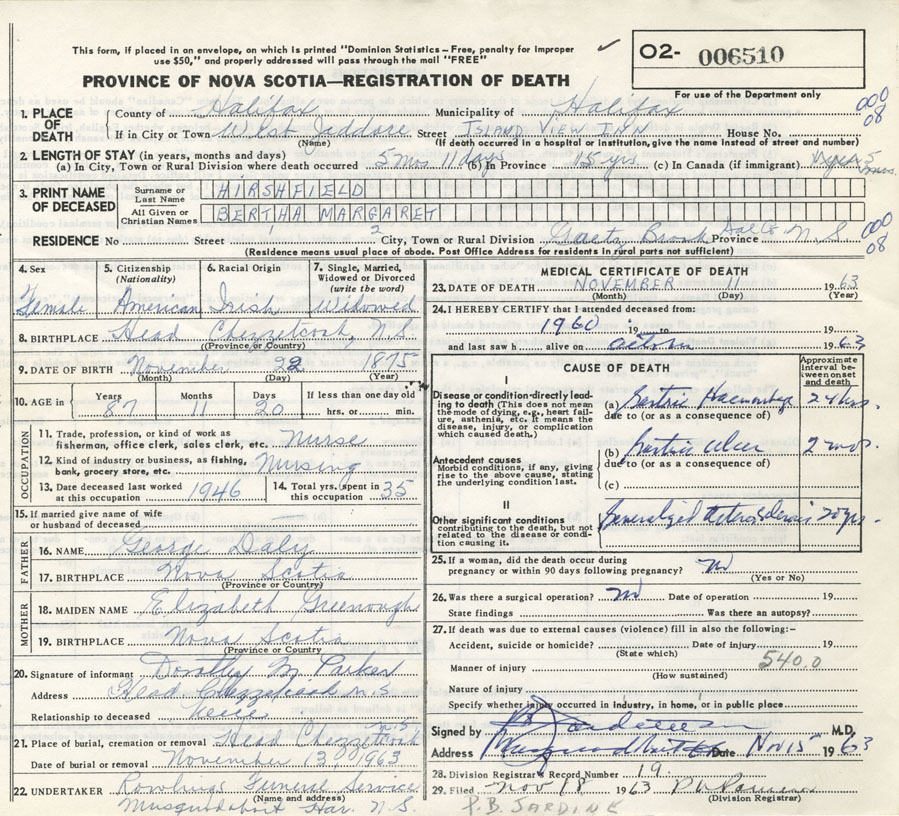 This form, if placed in an envelope, on which is printed "Dominion Statistics — Free, penalty for improper
use $50," and properly addressed will pass through the mail "FREE"
02- 006510
For use of the Department only
PROVINCE OF NOVA SCOTIA—REGISTRATION OF DEATH
1. PLACE OF DEATH County of Halifax Municipality of Halifax 000
If in City or Town West Jeddore Street ISLAND VIEW INN House No. 08
(Name) (If death occurred in a hospital or institution, give the name instead of street and number)
2. LENGTH OF STAY (in years, months and days)
(a) In City, Town or Rural Division where death occurred 5 mos 11 days (b) Province 15 yrs (c) In Canada (if immigrant)
3. PRINT NAME OF DECEASED Surname or Last Name HIRSHFIELD
All Given or Christian Names BERTHA MARGARET
RESIDENCE No Street City, Town or Rural Division Gaetz Brook Hal Co Province N.S 000 08
(Residence means usual place of abode. Post Office Address for residents in rural parts not sufficient)
4. Sex 5. Citizenship (Nationality) 6. Racial Origin 7. Single, Married, Widowed or Divorced (write the word)
Female American Irish Widowed
8. BIRTHPLACE Head Chezzetcook, N.S
(Province or Country)
9. DATE OF BIRTH November 22 1875
(Month) (Day) (Year)
10. AGE in Years Months Days If less than one day old
87 11 20 hrs. or min.
OCCUPATION
11. Trade, profession, or kind of work as fisherman, office clerk, sales clerk, etc. Nurse
12. Kind of industry or business, as fishing, bank, grocery store, etc. Nursing
13. Date deceased last worked at this occupation 1946 14. Total yrs. spent in this occupation 35
15. If married give name of wife or husband of deceased
FATHER
16. NAME George Daly
17. BIRTHPLACE Nova Scotia
(Province or Country)
MOTHER
18. MAIDEN NAME Elizabeth Greenough
19. BIRTHPLACE Nova Scotia
(Province or Country)
20. Signature of informant Dorothy M Parker
Address Head Chezzetcook N.S
Relationship to deceased Neice
21. Place of burial, cremation or removal Head Chezzetcook N.S
Date of burial or removal November 13 1963
22. UNDERTAKER Rowlings Funeral Service
(Name and address)
Musquodoboit Har. N.S.
MEDICAL CERTIFICATE OF DEATH
23. DATE OF DEATH NOVEMBER 11 1963
(Month) (Day) (Year)
24. I HEREBY CERTIFY that I attended deceased from:
1960 19 to 19
and last saw h alive on 1963
CAUSE OF DEATH Approximate interval between onset and death
I
Disease or condition directly leading to death (This does not mean the mode of dying, e.g., heart failure, asthenia, etc. It means the disease, injury, or complication which caused death.)
(a) Gastric Haemorrhage 24 hrs.
due to (or as a consequence of)
Antecedent causes
Morbid conditions, if any, giving rise to the above cause, stating the underlying condition last.
(b) Gastric Ulcer 2 mos.
due to (or as a consequence of)
(c)
II
Other significant conditions contributing to the death, but not related to the disease or condition causing it.
Generalized 20 yrs.
25. If a woman, did the death occur during pregnancy or within 90 days following pregnancy? No
(Yes or No)
26. Was there a surgical operation? No Date of operation 19
State findings Was there an autopsy?
27. If death was due to external causes (violence) fill in also the following:—
Accident, suicide or homicide? Date of injury 19
(State which)
540.0
Manner of injury
(How sustained)
Nature of injury
Specify whether injury occurred in industry, in home, or in public place
Signed by M.D.
Address Date Nov 15 1963
28. Division Registrar's Record Number 19.
29. Filed Nov 18 1963
(Division Registrar)
P.B. JARDINE